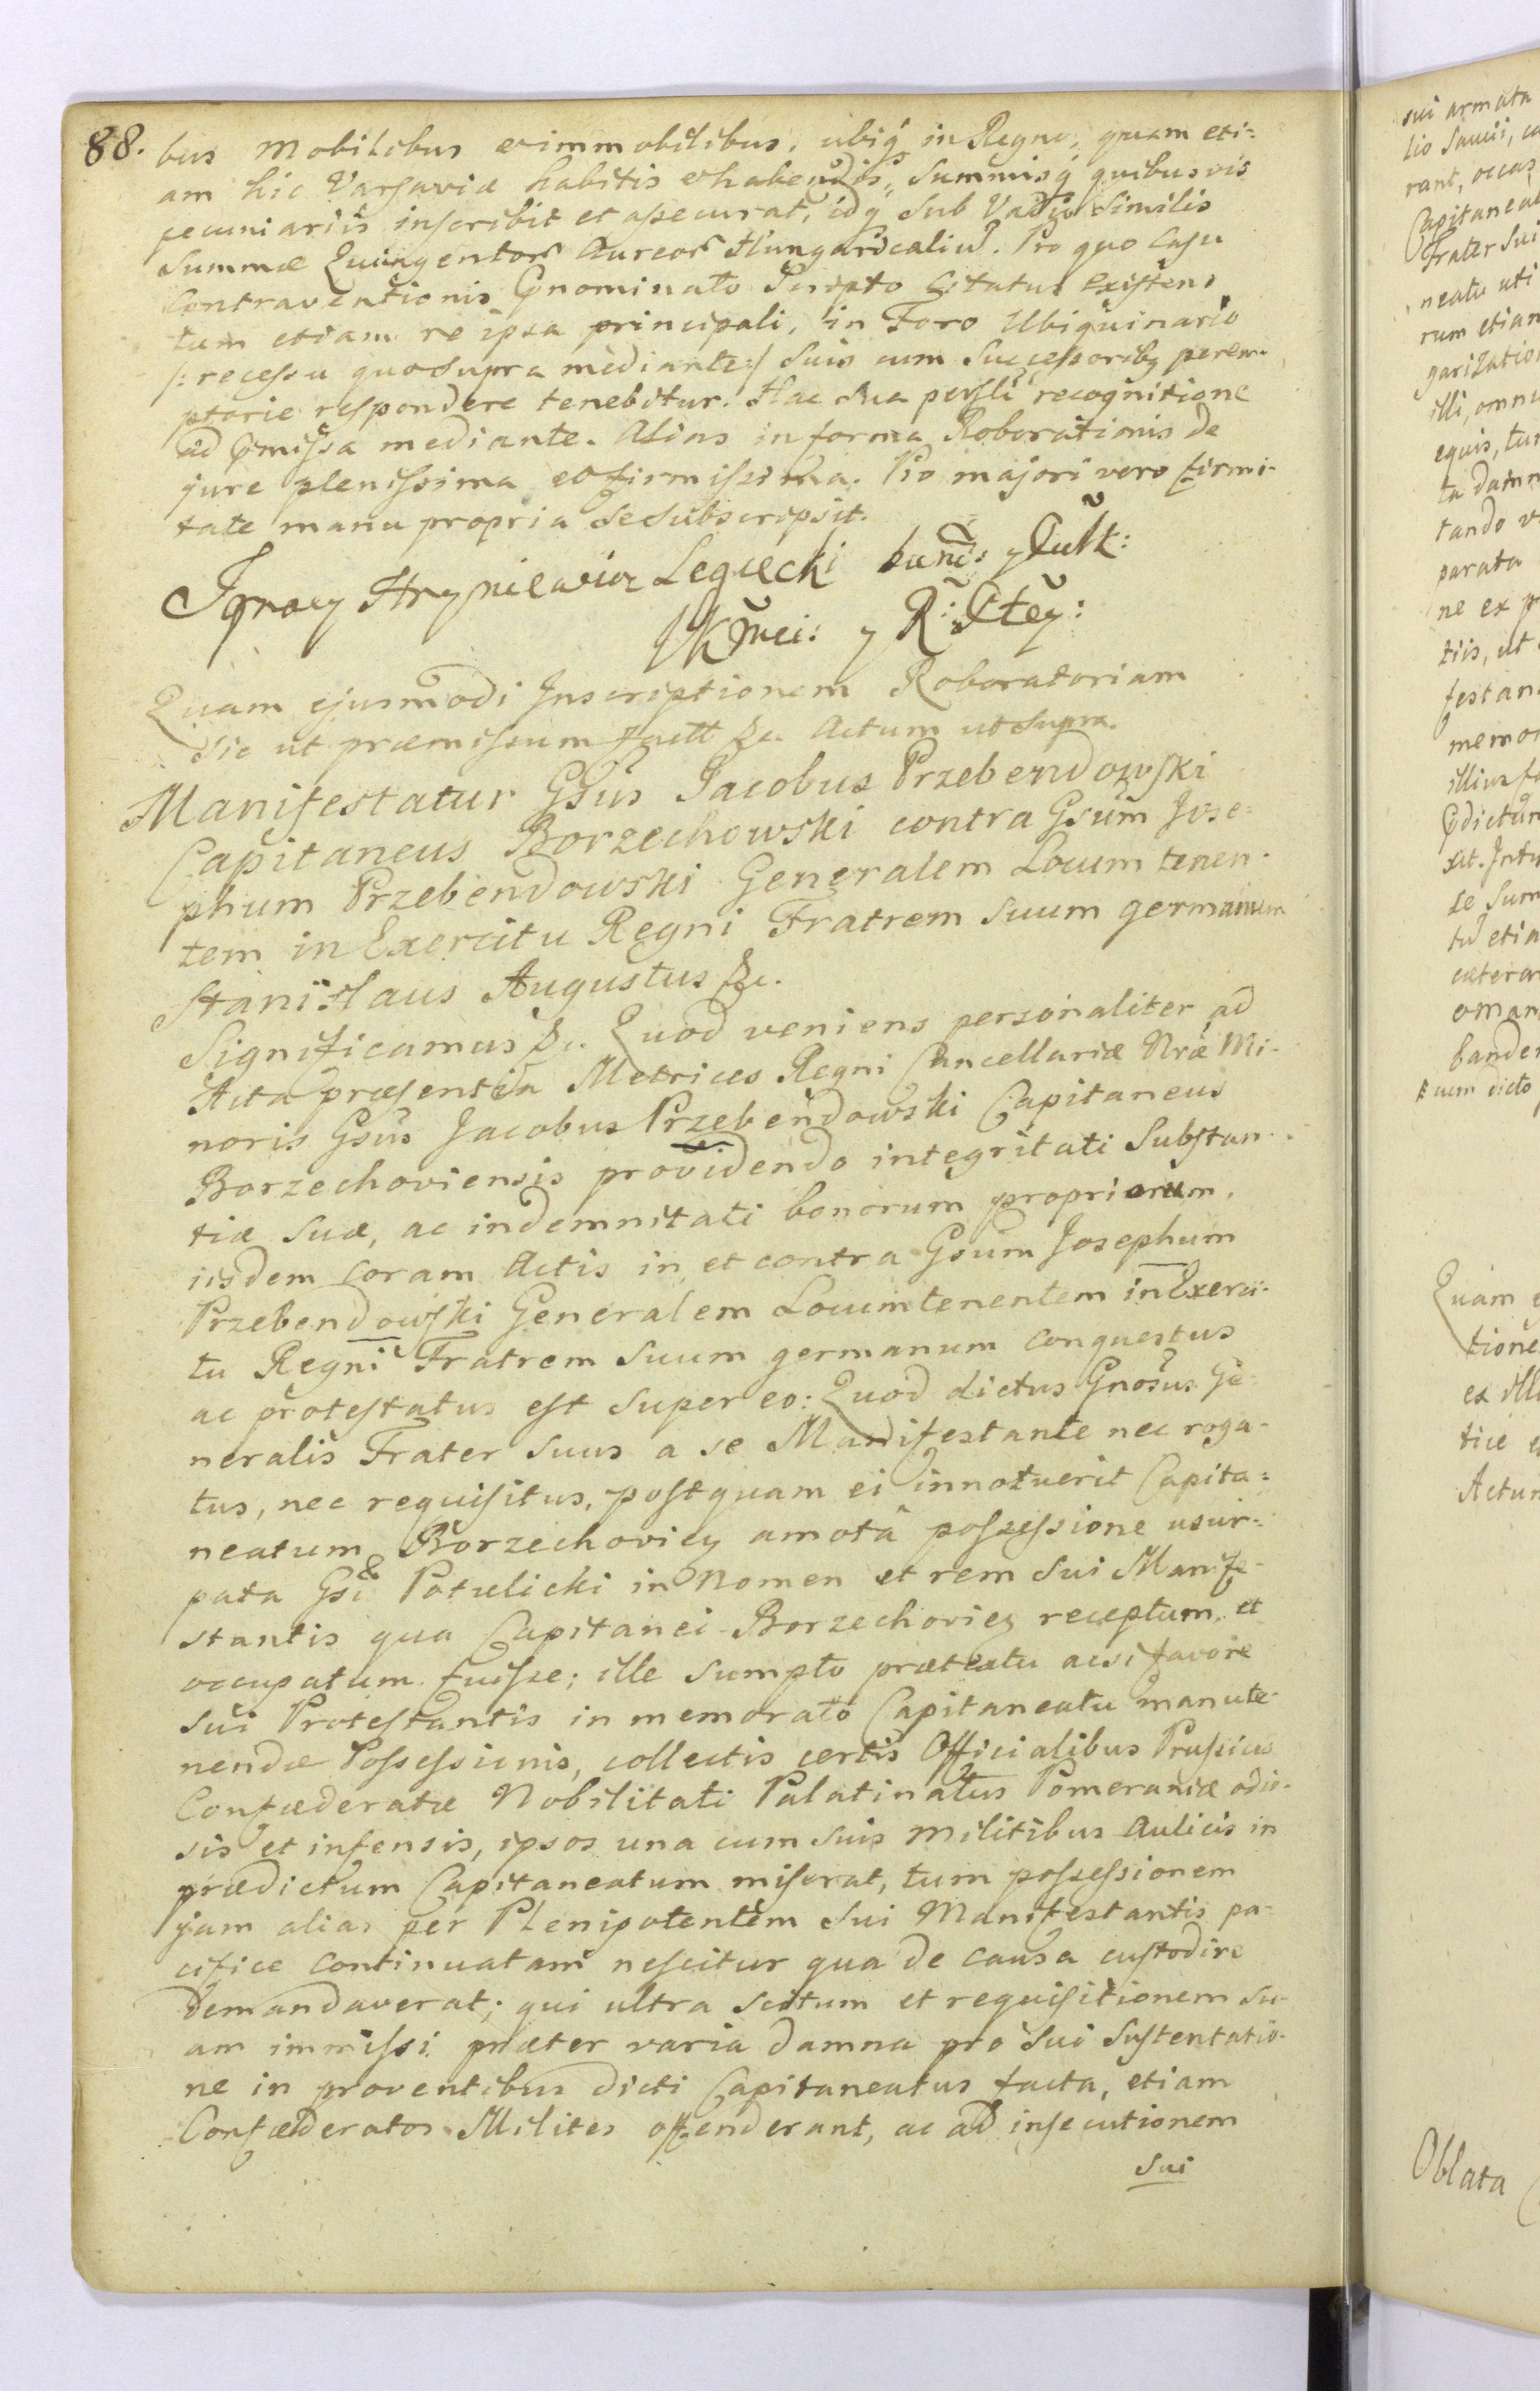 88.
bus Mobilibus et immobilibus, ubiq́ in Regno, quam eti=
am hic Varsaviæ habitis et habendis, Summisq́ quibusvis
pecuniariis inscribit et assecurat, idq́ sub Vadio similis
Summæ Quingentor Aureor Hungaricaliũ. Pro quo casu
Contraventionis nominato Scripto Citatus existens
tum etiam re ipsa principali, in Foro Ubiquinario
/: recessu quo supra mediante :/ suis cum Successoribq perem-
ptorie respondere tenebitur. Hac sua persli recognitione
ad pmissa mediante. Alias in forma Roborationis de
jure plenissima et firmissima. Pro majori vero firmi-
tate manu propria se subscripsit.
Ignacy Hryniewicz Legucki
y
Quam ejusmodi Inscriptionem Roboratoriam
sic ut præmissum factt &c. Actum ut supra.
Manifestatur Gsus Jacobus Przebendowski
Capitaneus Borzechowski contra Gsum Jose-
phum Przebendowski Generalem Locumtenen-
tem in Exercitu Regni Fratrem suum germanum
Stanislaus Augustus &c.
Significamus &c. Quod veniens personaliter ad
Acta præsentia Metrices Regni Cancellariæ Nræ Mi-
noris Gsus Jacobus Przebendowski Capitaneus
Borzechoviensis providendo integritati Substan-
tiæ suæ, ac indemnitati bonorum propriorum,
iisdem coram Actis in et contra Gsum Josephum
Przebendowski Generalem Locumtenentem in Exerci-
tu Regni Fratrem suum germanum conquestus
ac protestatus est super eo: Quod dictus Gnosus Ge-
neralis Frater suus a se Manifestante nec roga-
tus, nec requisitus, postquam ei innotuerit Capita=
neatum Borzechoviey amotâ possessione usur=
pata Gsi Potulicki in Nomen et rem sui Manife-
stantis qua Capitanei Borzechoviey receptum, et
occupatum fuisse; ille sumpto prætextu acsi favore
sui Protestantis in memorato Capitaneatu manute-
nendæ Possessionis, collectis certis Officialibus Prussicis
Confæderatæ Nobilitati Palatinatus Pomeraniæ odio-
sis et infensis, ipsos una cum suis Militibus Aulicis in
prædictum Capitaneatum miserat, tum possessionem
jam alias per Plenipotentem sui Manifestantis pa-
cifice continuatam nescitur qua de causa custodire
demandaverat; qui ultra scitum et requisitionem su-
am immissi præter varia damna pro sui sustentatio-
ne in proventibus dicti Capitaneatus facta, etiam
Confæderatos Milites offenderant, ac ad insecutionem
sui
sui armata
rant, occas
Capitaneat
Frater sui
neatu uti
rum etiam
garizatio
illi, omni
equis, tum
ta damn
tando v
parata
ne ex p
tiis, ut
festan
memor
illius f
dictum
sit. Intu
se sum
tũ etia
cæteror
oman
bander
cum dicto
Quam e
tione
ex ill
tice e
Actum
Oblata